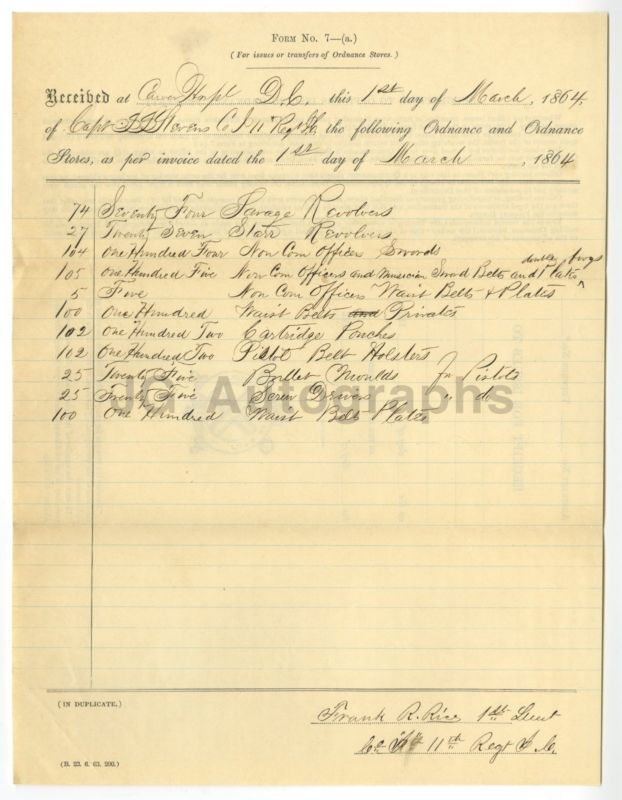 FORM No. 7—(a.)
(For issues or transfers of Ordnance Stores.)
Received at Carver Hospl D.C. this 1st day of March, 1864,
of Capt Stevens Co I 11" Regt the following Ordnance and Ordnance
Stores, as per invoice dated the 1st day of March, 1864
74 Seventy Four Savage Revolvers
27 Twenty Seven Starr Revolvers
104 One Hundred Four Non Com Officers Swords
double frogs
105 One Hundred Five Non Com Officers and Musician Sword Belts and Plates
5 Five Non Com Officers Waist Belts & Plates
100 One Hundred Waist Belts and Privates
102 One Hundred Two Cartridge Pouches
102 One Hundred Two Pistol Belt Holsters
25 Twenty Five Bullet Moulds for Pistols
25 Twenty Five Screw Drivers " d
100 One Hundred Waist Belt Plates
Autographs
(IN DUPLICATE.)
Frank R. Rice 1st Lieut
Co 11th Regt
(B. 23. 6. 63. 200.)